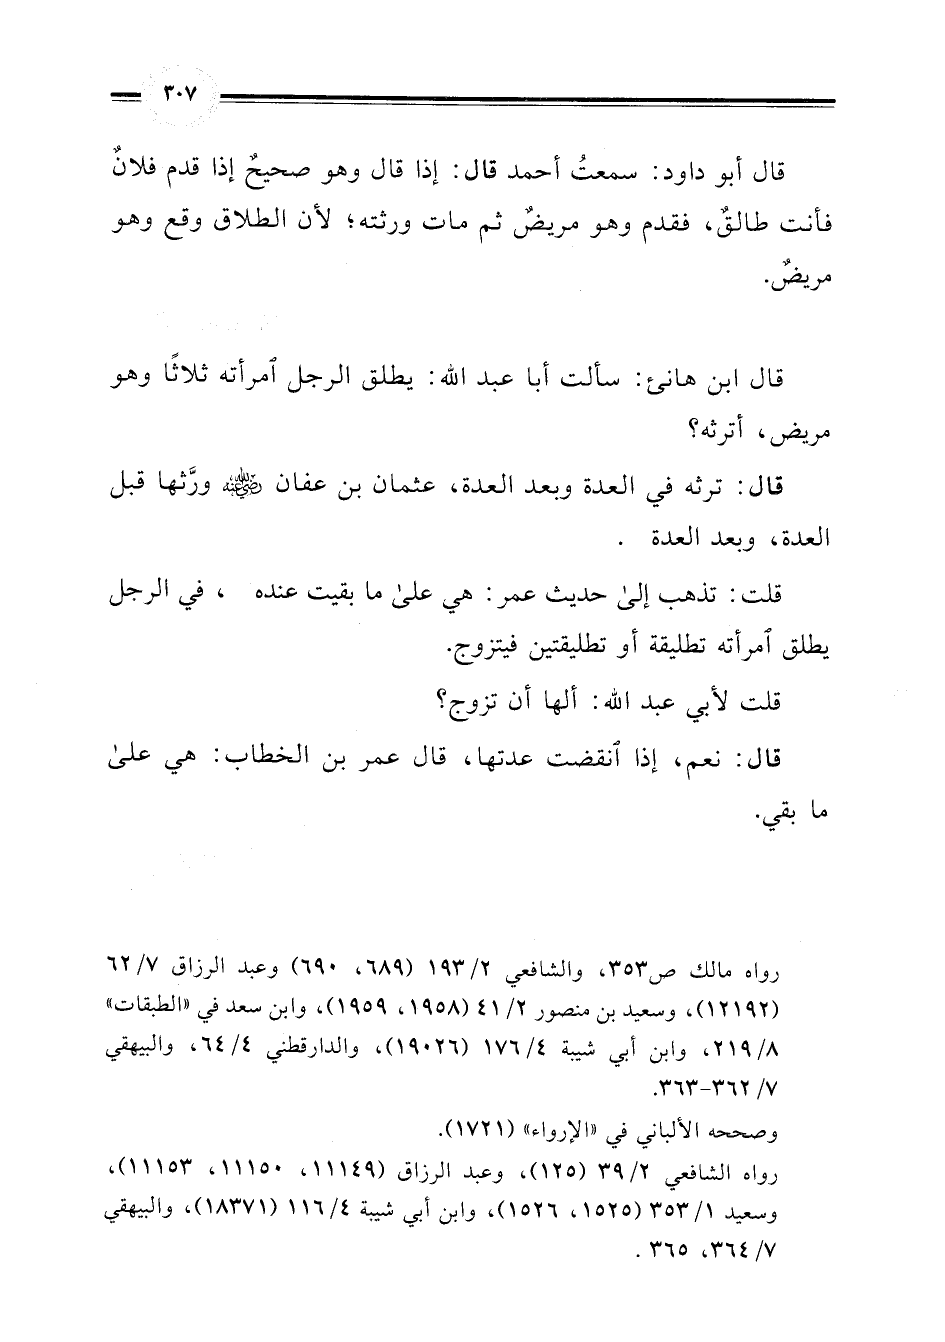 ٣٠٧
قال أبو داود: سمعتُ أحمد قال: إذا قال وهو صحيحٌ إذا قدم فلانٌ
فأنت طالقٌ، فقدم وهو مريضٌ ثم مات ورثته؛ لأن الطلاق وقع وهو
مريضٌ.
قال ابن هانئ: سألت أبا عبد الله: يطلق الرجل ٱمرأته ثلاثًا وهو
مريض، أترثه؟
قال: ترثه في العدة وبعد العدة، عثمان بن عفان رضي الله عنه ورَّثها قبل
العدة، وبعد العدة .
قلت: تذهب إلىٰ حديث عمر: هي علىٰ ما بقيت عنده ، في الرجل
يطلق ٱمرأته تطليقة أو تطليقتين فيتزوج.
قلت لأبي عبد الله: ألها أن تزوج؟
قال: نعم، إذا ٱنقضت عدتها، قال عمر بن الخطاب: هي علىٰ
ما بقي.
رواه مالك ص٣٥٣، والشافعي ٢/ ١٩٣ (٦٨٩، ٦٩٠) وعبد الرزاق ٧/ ٦٢
(١٢١٩٢)، وسعيد بن منصور ٢/ ٤١ (١٩٥٨، ١٩٥٩)، وابن سعد في «الطبقات»
٨/ ٢١٩، وابن أبي شيبة ٤/ ١٧٦ (١٩٠٢٦)، والدارقطني ٤/ ٦٤، والبيهقي
٧/ ٣٦٢-٣٦٣.
وصححه الألباني في «الإرواء» (١٧٢١).
رواه الشافعي ٢/ ٣٩ (١٢٥)، وعبد الرزاق (١١١٤٩، ١١١٥٠، ١١١٥٣)،
وسعيد ١/ ٣٥٣ (١٥٢٥، ١٥٢٦)، وابن أبي شيبة ٤/ ١١٦ (١٨٣٧١)، والبيهقي
٧/ ٣٦٤، ٣٦٥ .